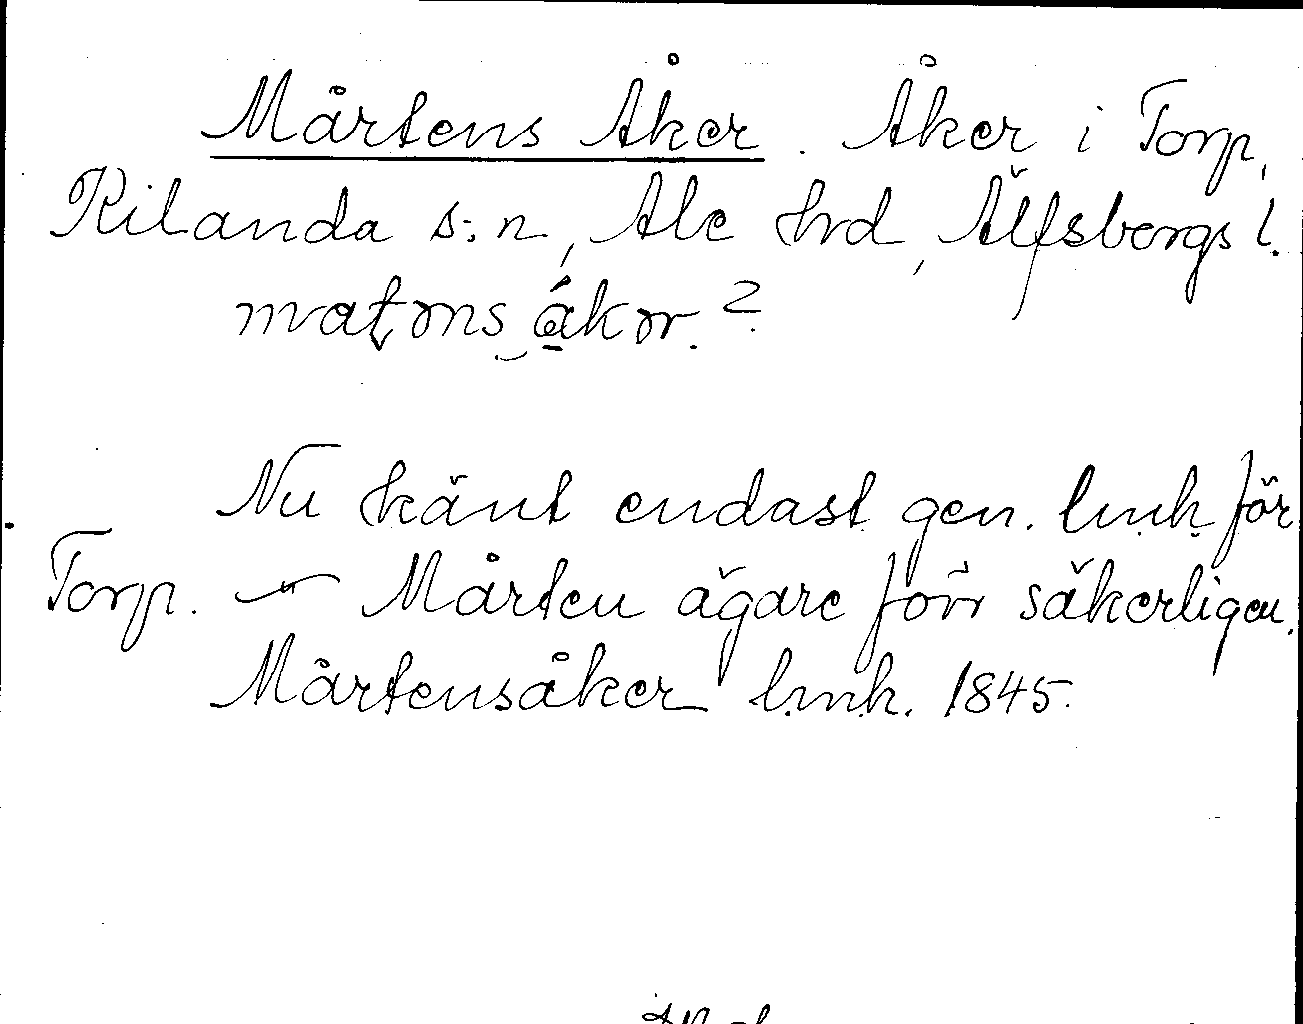 Mårtens Åker. Åker i Torp,
Kilanda s:n, Ale hrd, Älfsborgs l.
Nu känt endast gen. lmk för
Torp. — Mårten ägare förr säkerligen.
Mårtensåker lmk. 1845.